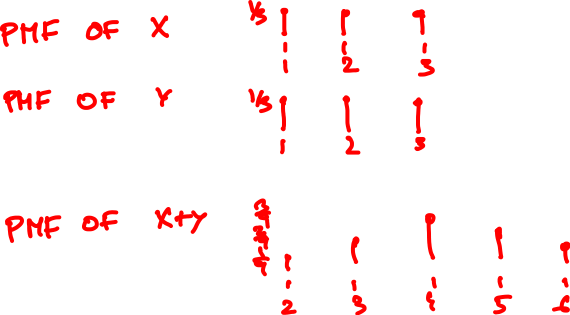 PMF OF X 1/3
1 2 3
PMF OF Y 1/3
1 2 3
PMF OF X+Y
2 3 4 5 6